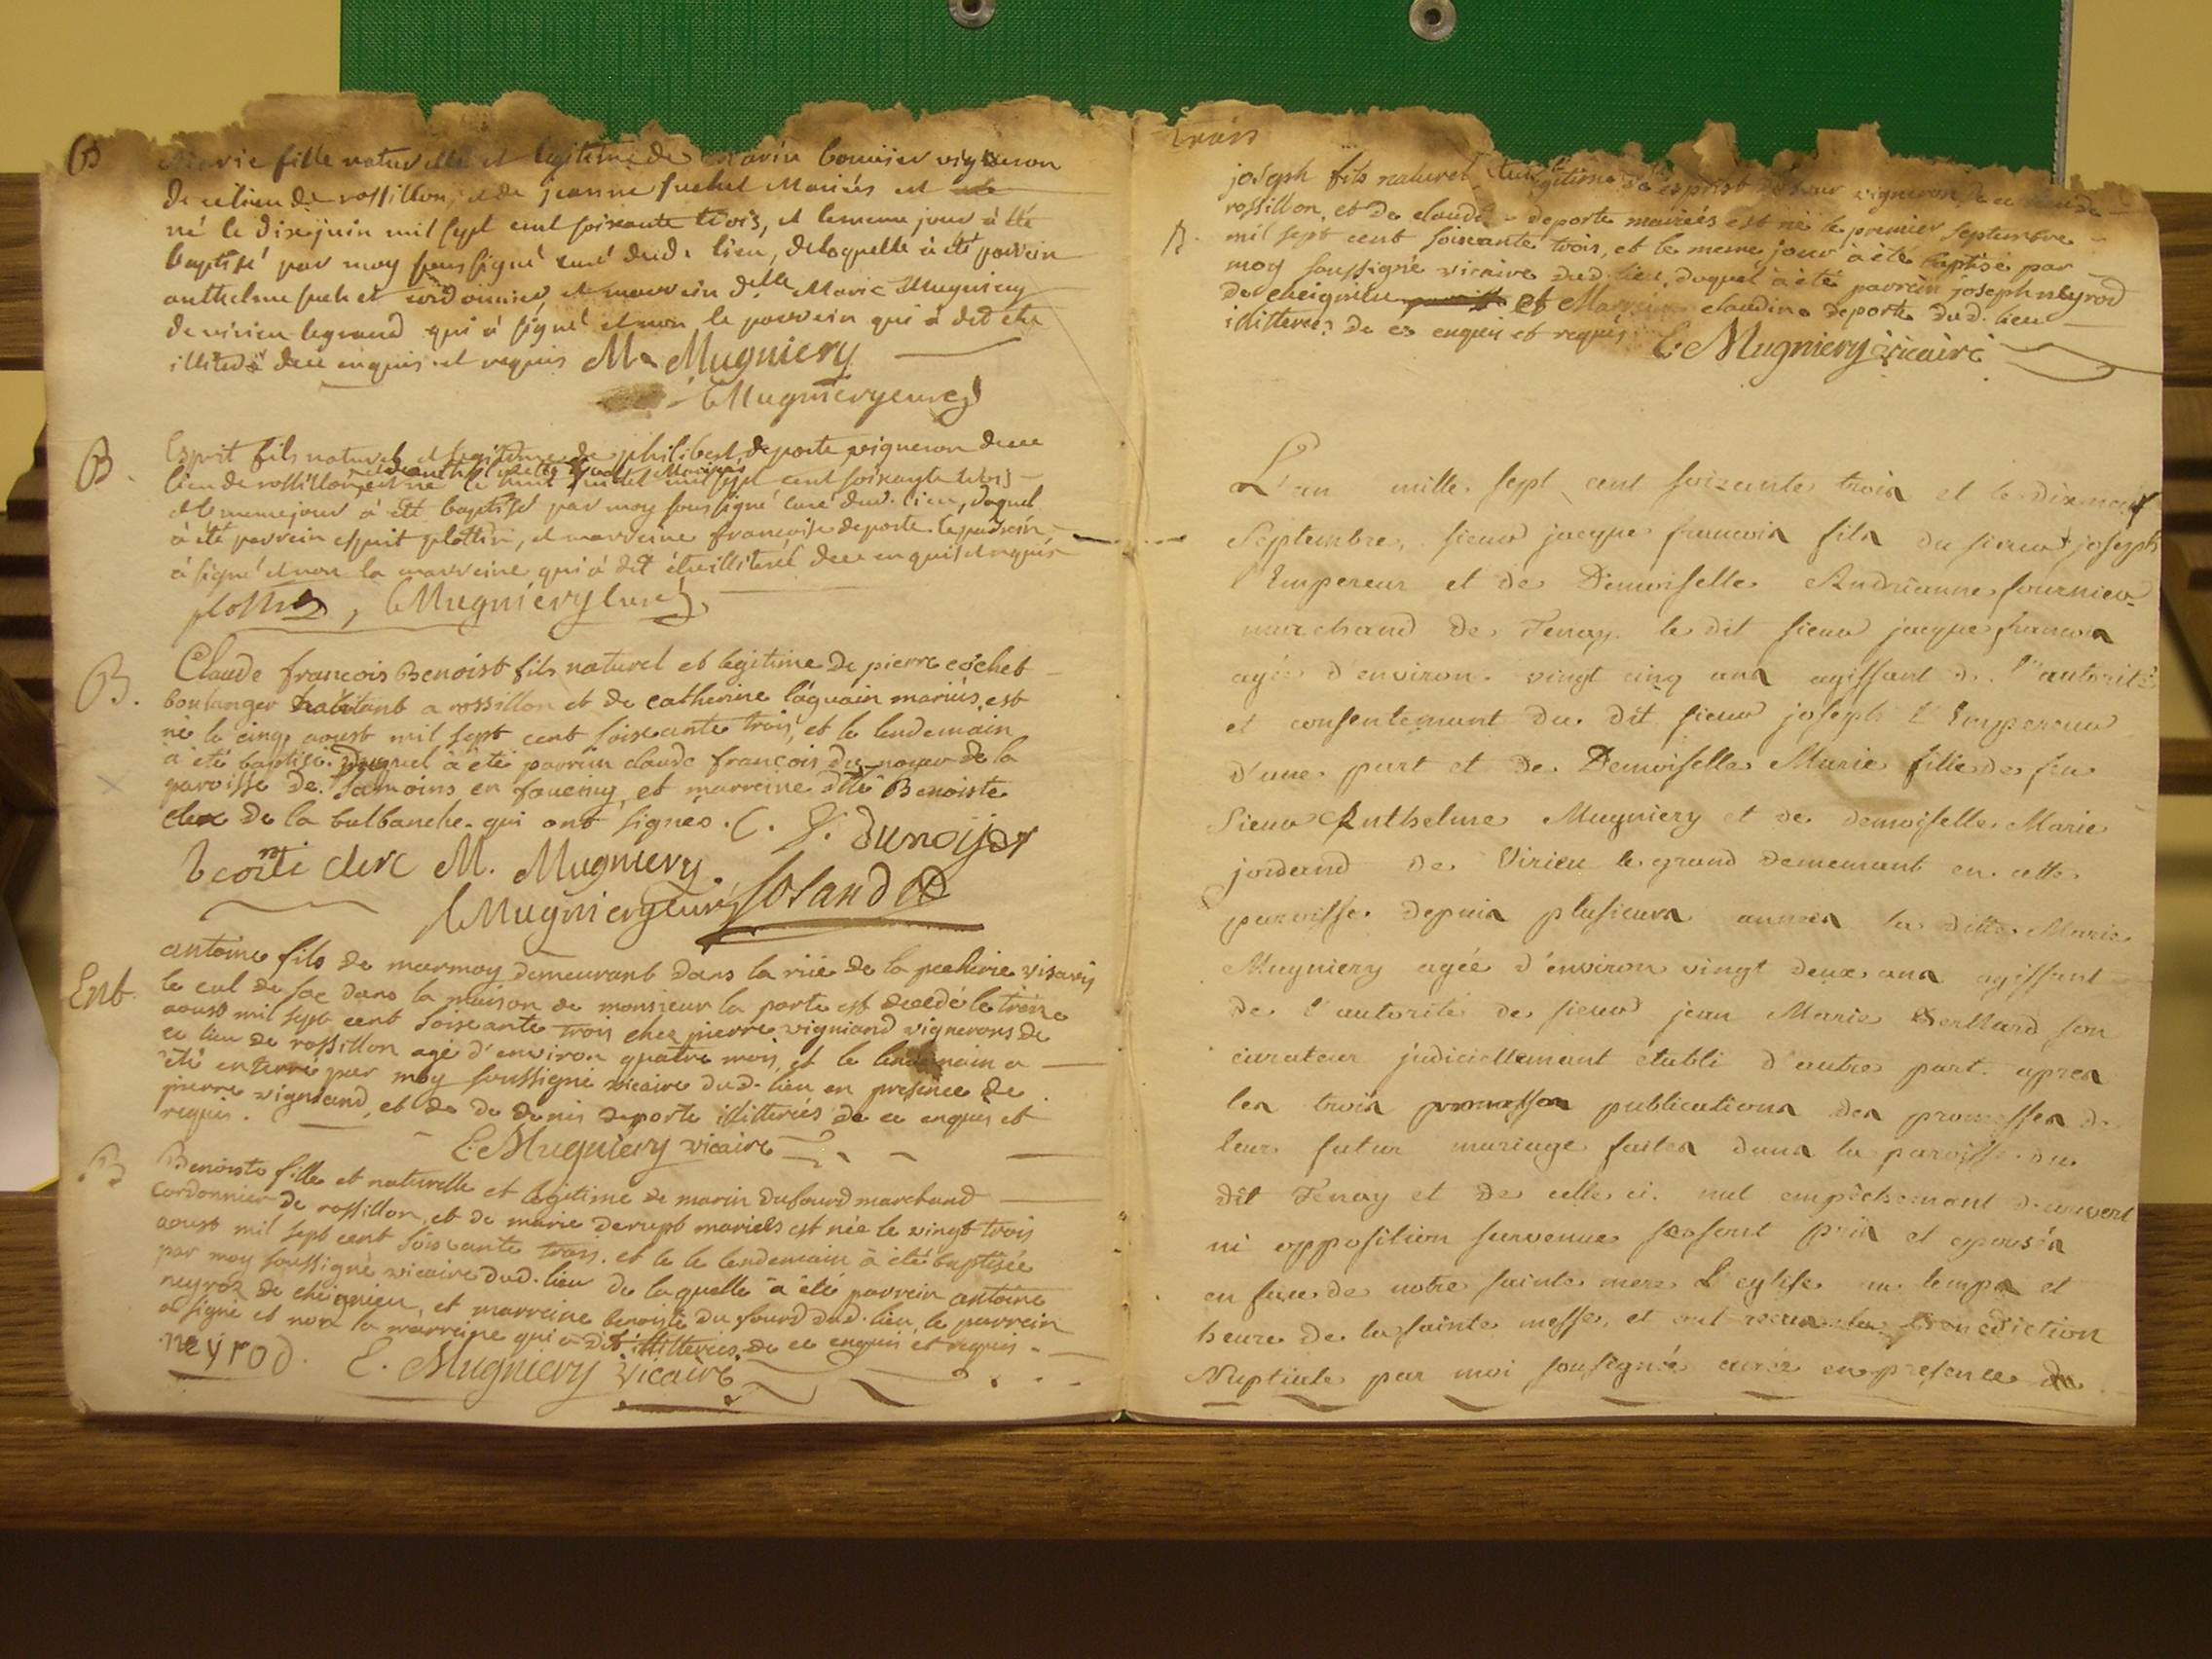 B
Marie fille naturelle et legitime de Marin bonnier vigneron
de ce lieu de rossillon, et de jeanne suchet Mariés est
né le dix juin mil sept cent soixante trois, et le meme jour à été
baptisé par moy soussigné curé dud. lieu, de laquelle à été parrein
anthelme suchet cordonnier, et marrein delle Marie Mugniery
de virieu le grand qui à signé et non le parrein qui à dit etre
illiteré de ce enquis et requis M. Mugniery
Mugniery curé
B.
Esprit fils naturel et legitime de philibert deporte vigneron de ce
lieu de rossillon, est né le huit juillet mil sept cent soixante trois
et le meme jour à été baptisé par moy soussigné curé dud. lieu, duquel
à été parrein esprit plottin, et marreine francoise deporte le parrein
à signé et non la marreine qui à dit etre illiteré de ce enquis et requis
, Mugniery curé
B.
Claude francois Benoist fils naturel et legitime de pierre cochet
boulanger habitant a rossillon et de catherine laguain mariés est
né le cinq aoust mil sept cent soixante trois, et le lendemain
à été baptisé. Duquel à été parrein claude francois du noyer de la
paroisse de Samoins en fouciny, et marreine dlle Benoiste
clerc de la balbanche qui ont signés. C. F. dunoijer
clerc M. Mugniery.
Mugniery curé
Ent
antoine fils de marmoy demeurant dans la rüe de la pecherie visavis
le cul de sac dans la maison de monsieur la porte est decedé le treize
aoust mil sept cent soixante trois chez pierre vigniand vignerons de
ce lieu de rossillon agé d'environ quatre mois, et le lendemain a
été enterré par moy soussigné vicaire dud. lieu en presence de
pierre vigniand, et de de denis deporte illitterés de ce enquis et
requis.
E. Mugniery vicaire
B
Benoiste fille et naturelle et legitime de marin dufourd marchand
cordonnier de rossillon, et de marie derupt mariés est née le vingt trois
aoust mil sept cent soixante trois. et le le lendemain à été baptisée
par moy soussigné vicaire dud. lieu de laquelle à été parrein antoine
neyrod de cheignieu, et marreine benoiste du fourd dud. lieu le parrein
a signé et non la marreine qui a dit illiterés de ce enquis et requis.
neyrod. E. Mugniery Vicaire
trois
joseph fils naturel et legitime de esprist vigneron de ce lieu de
rossillon, et de claudi deporte mariés est né le premier septembre
B.
mil sept cent soixante trois, et le meme jour à été baptisé par
moy soussigné vicaire dud. lieu, duquel à été parrein joseph neyrod
de cheignieu et Marreine claudine deporte dud. lieu
illitterés de ce enquis et requis E. Mugniery vicaire
L'an mille sept cent soixante trois et le dixneuf
Septembre, sieur jacque francois fils du sieur joseph
l'Empereur et de Demoiselle Andrianne fournier
marchand de Tenay le dit sieur jacque francois
agée d'environ vingt cinq ans agissant de l'autorité
et consentement du dit sieur joseph L'Empereur
d'une part et de Demoiselle Marie fille de feu
Sieur Anthelme Mugniery et de demoiselle Marie
jordand de Virieu le grand demeurant en cette
paroisse depuis plusieurs années la ditte Marie
Mugniery agée d'environ vingt deux ans agissant
de l'autorité de sieur jean Marie Serllard son
curateur judiciellemant etabli d'autre part. apres
les trois publications des promesses de
leur futur mariage faites dans la paroisse du
dit Tenay et de celle ci. nul empêchemant decuvert
ni opposition survenue se sont pris et epousés
en face de notre sainte mere L'eglise au temps et
heure de la sainte messe, et ont recu la benediction
Nuptiale par moi sousignée curée en presence de